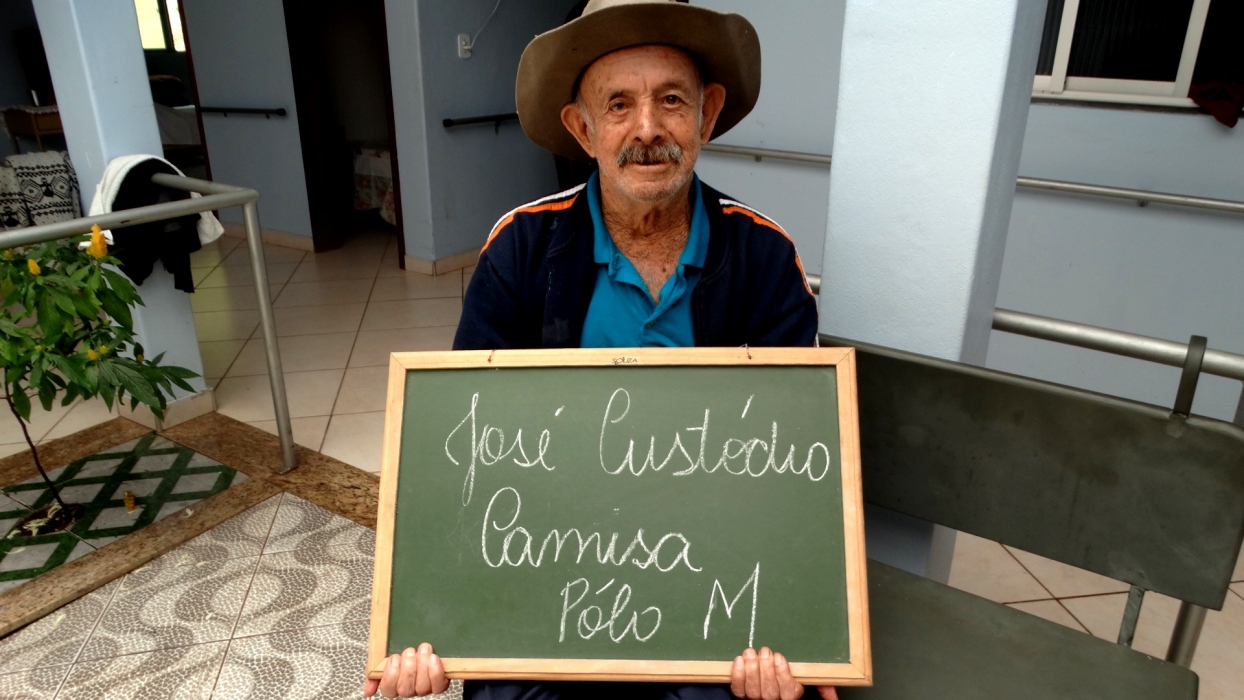 SOUZA
José Custódio
Camisa
Pólo M